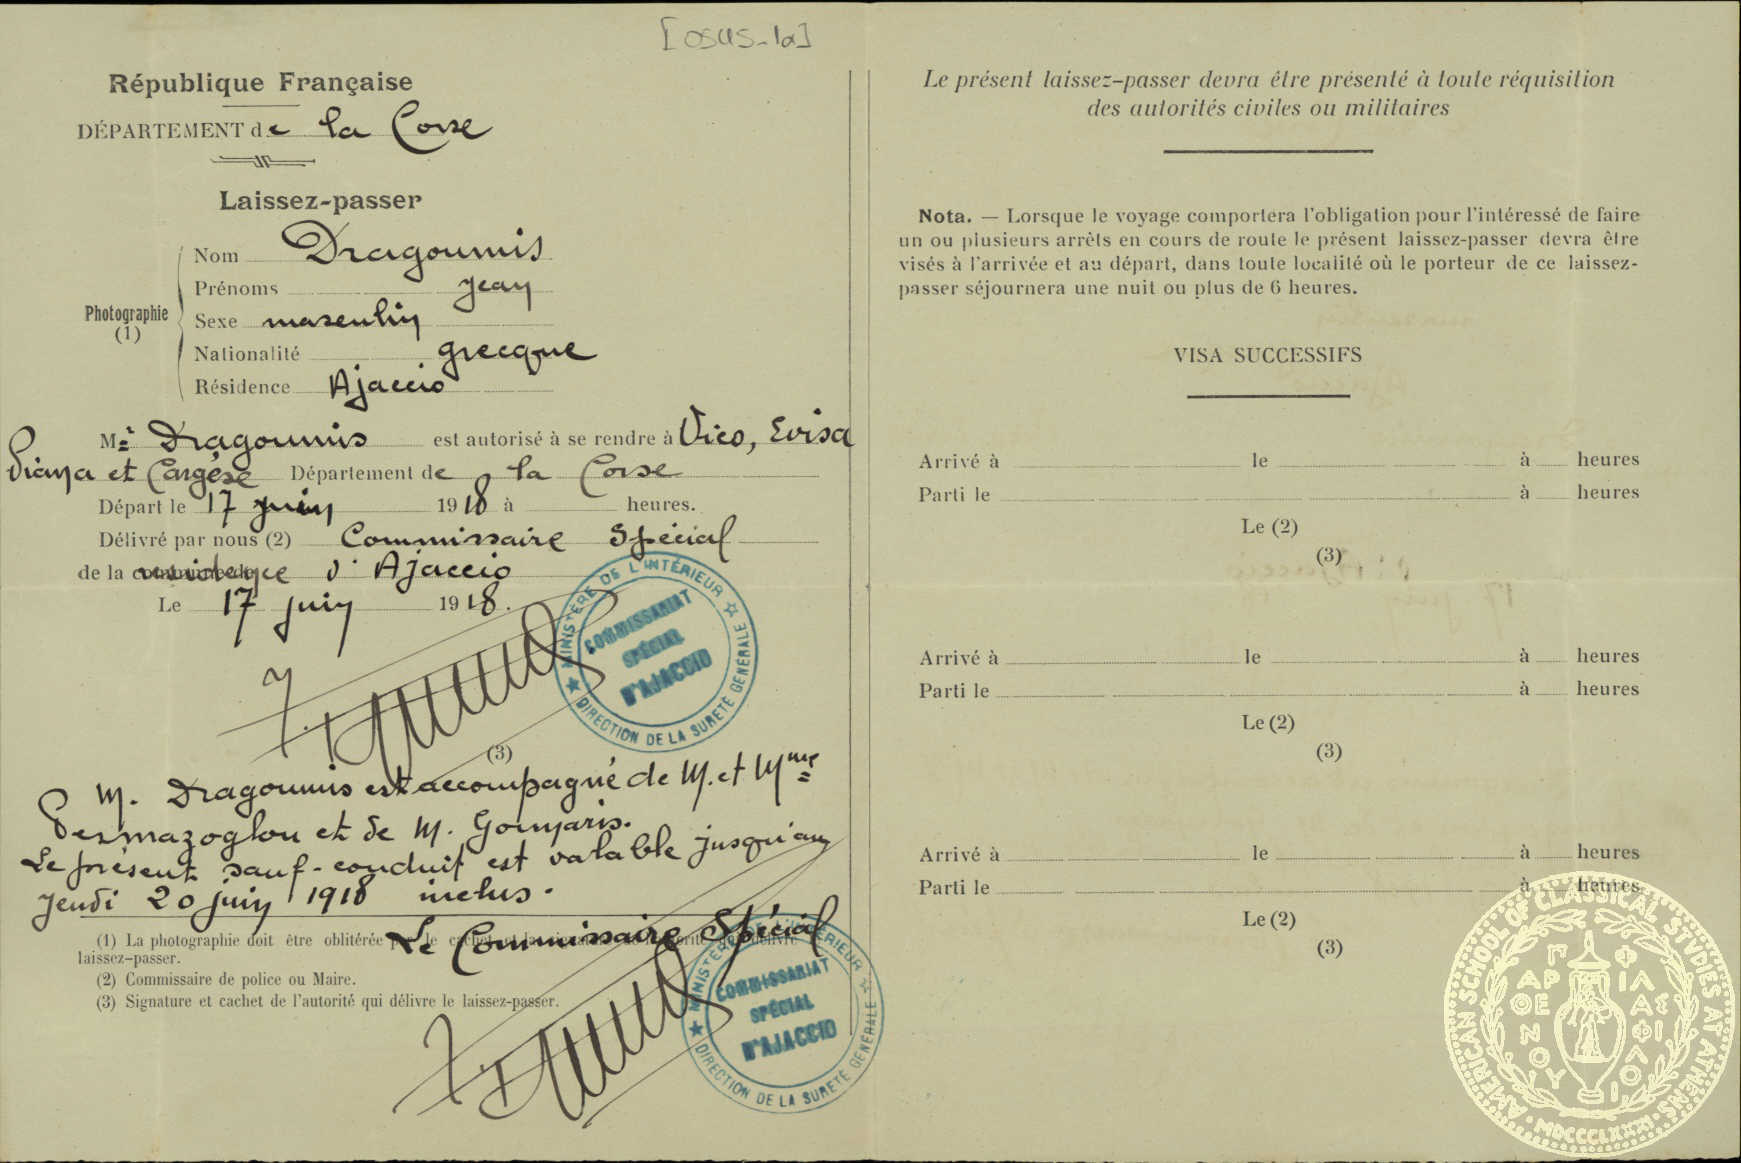 [OSUS-1a]
République Française
DÉPARTEMENT de la Corse
Laissez-passer
Nom Dragoumis
Prénoms Jean
Photographie
(1)
Sexe masculin
Nationalité grecque
Résidence Ajaccio
Mr Dragoumis est autorisé à se rendre à Vico, Evisa
Piana et Cargèse Département de la Corse
Départ le 17 juin 1918 à heures.
Délivré par nous (2) Commissaire Spécial
de la résidence d'Ajaccio
Le 17 juin 1918.
MINISTÈRE DE L'INTÉRIEUR
COMMISSARIAT
SPÉCIAL
D'AJACCIO
DIRECTION DE LA SURETÉ GÉNÉRALE
(3)
M. Dragoumis est accompagné de M. et Mme
Permazoglou et de M. Gounaris.
Le présent sauf-conduit est valable jusqu'au
Jeudi 20 juin 1918 inclus.
Le Commissaire Spécial
(1) La photographie doit être oblitérée par le cachet et la signature de l'autorité qui délivre le
laissez-passer.
(2) Commissaire de police ou Maire.
(3) Signature et cachet de l'autorité qui délivre le laissez-passer.
MINISTÈRE DE L'INTÉRIEUR
COMMISSARIAT
SPÉCIAL
D'AJACCIO
DIRECTION DE LA SURETÉ GÉNÉRALE
Le présent laissez-passer devra être présenté à toute réquisition
des autorités civiles ou militaires
Nota. — Lorsque le voyage comportera l'obligation pour l'intéressé de faire
un ou plusieurs arrêts en cours de route le présent laissez-passer devra être
visés à l'arrivée et au départ, dans toute localité où le porteur de ce laissez-
passer séjournera une nuit ou plus de 6 heures.
VISA SUCCESSIFS
Arrivé à le à heures
Parti le à heures
Le (2)
(3)
Arrivé à le à heures
Parti le à heures
Le (2)
(3)
Arrivé à le à heures
Parti le à heures
Le (2)
(3)
AMERICAN SCHOOL OF CLASSICAL STVDIES AT ATHENS
MDCCCLXXXI
ΠΑΡΘΕΝΟΥ
ΦΙΛΑΣ ΦΙΛΟΙ